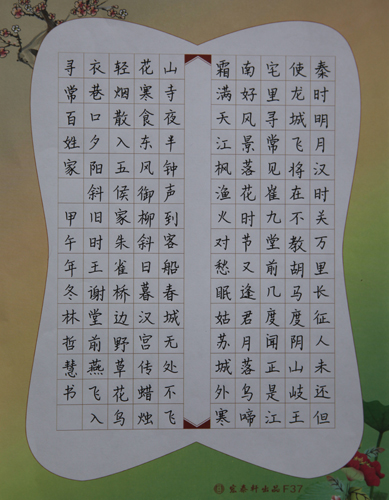 秦时明月汉时关万里长征人未还但
使龙城飞将在不教胡马度阴山岐王
宅里寻常见崔九堂前几度闻正是江
南好风景落花时节又逢君月落乌啼
霜满天江枫渔火对愁眠姑苏城外寒
山寺夜半钟声到客船春城无处不飞
花寒食东风御柳斜日暮汉宫传蜡烛
轻烟散入五侯家朱雀桥边野草花乌
衣巷口夕阳斜旧时王谢堂前燕飞入
寻常百姓家 甲午年冬林哲慧书
出品F37